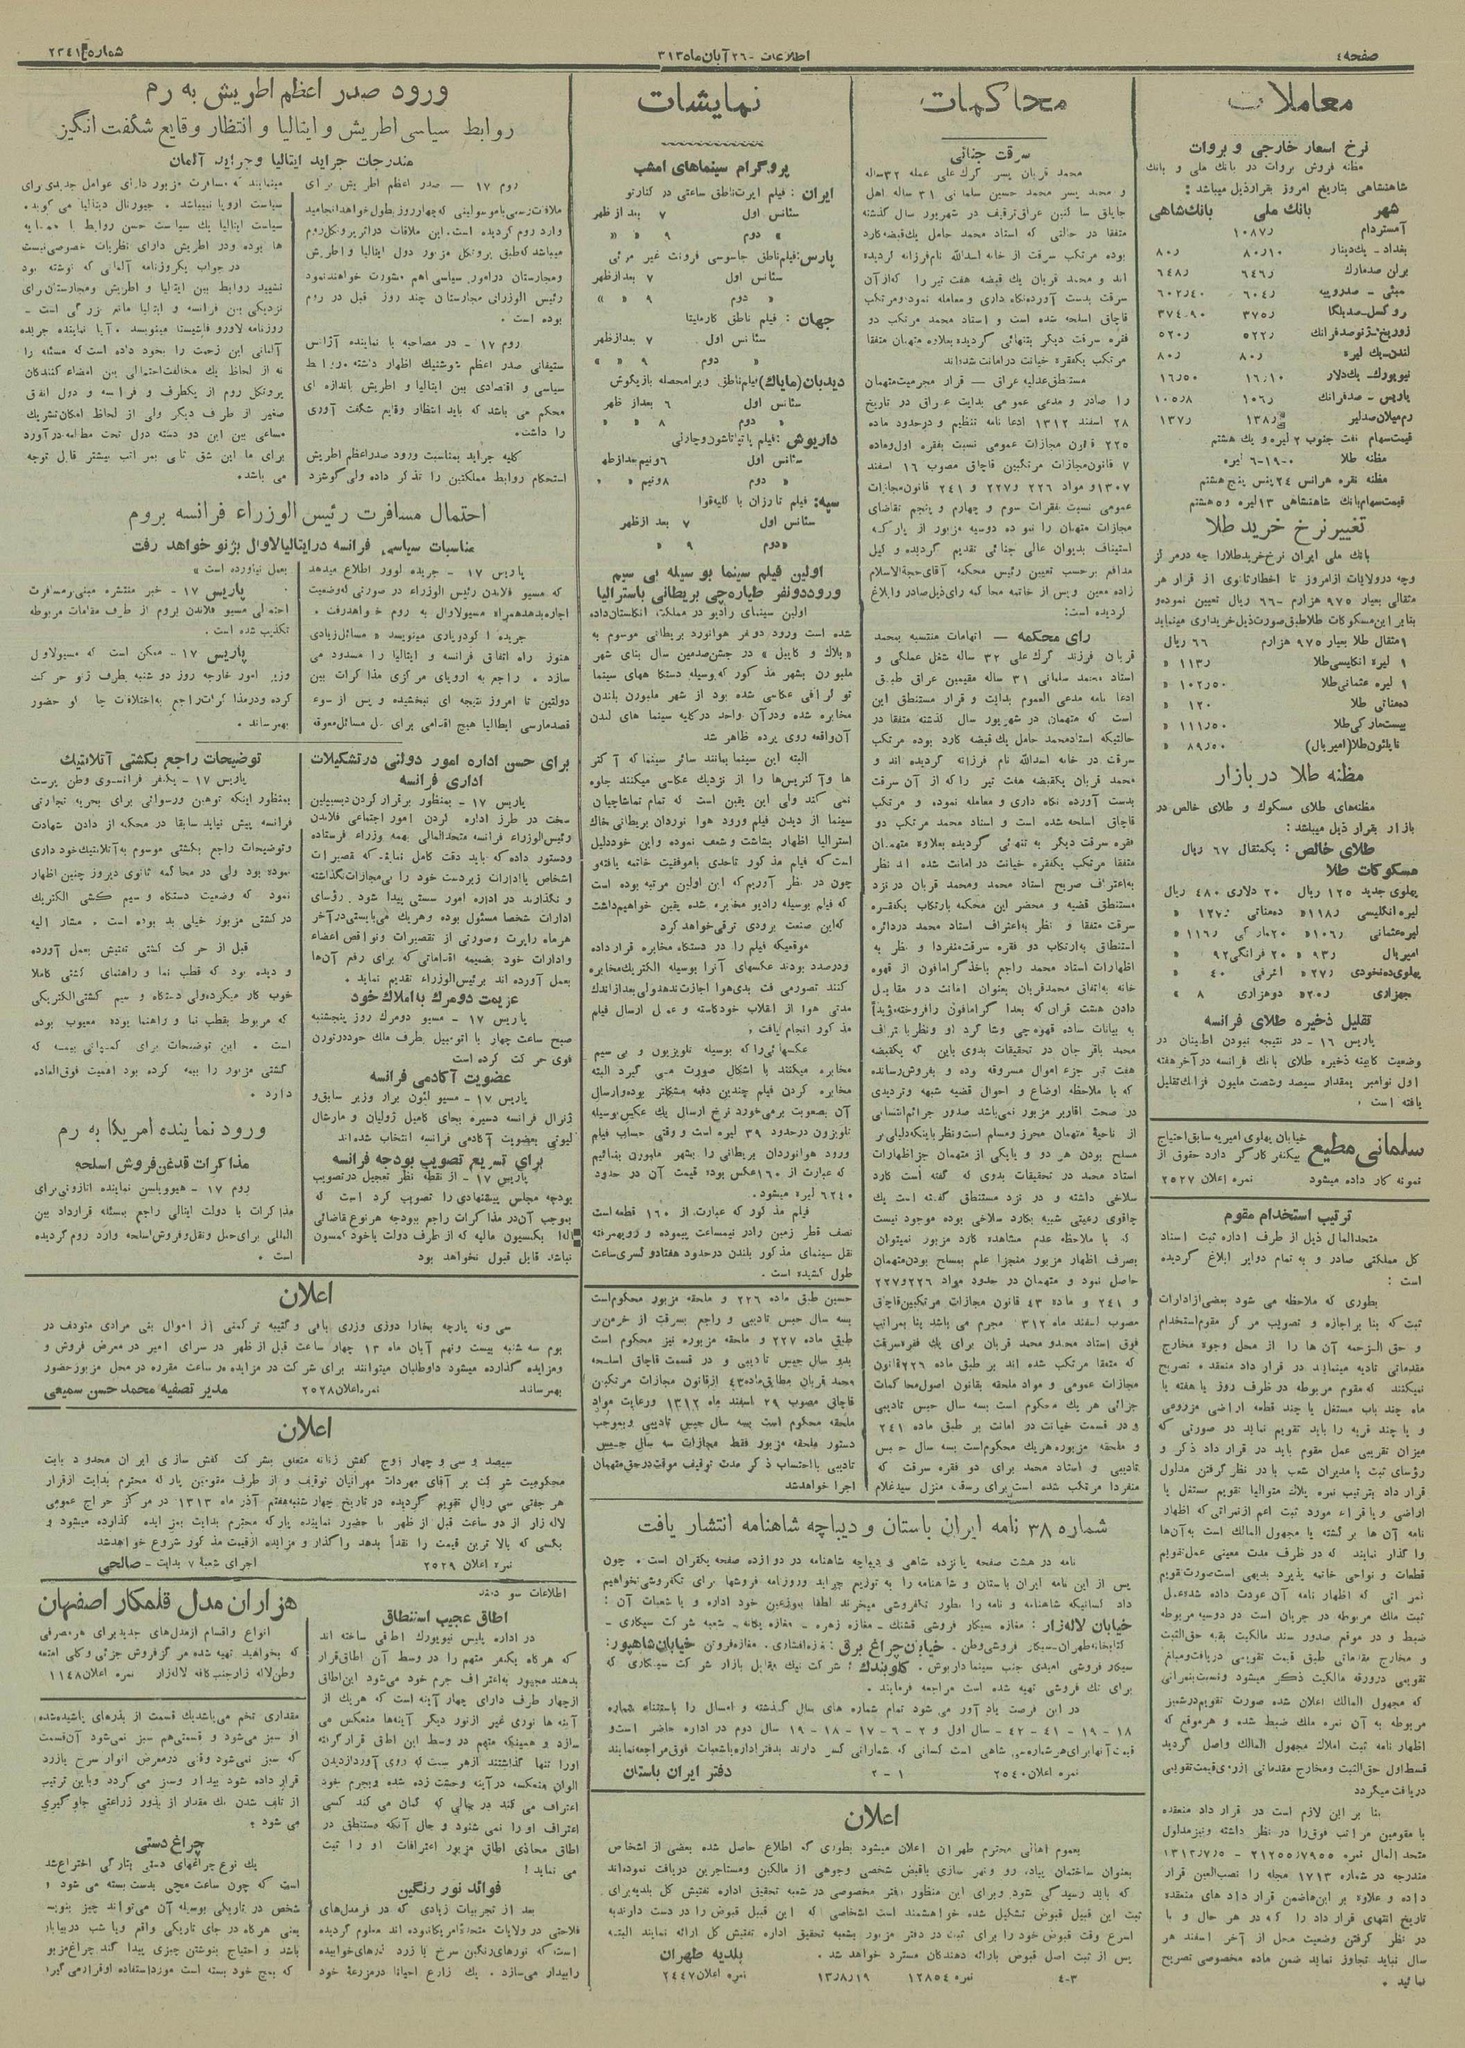 صفحه ٤
اطلاعات - ٢٦ آبان ماه ٣١٣
شماره ٢٣٤١
معاملات
نرخ اسعار خارجی و بروات
مظنه فروش بروات در بانك ملی و بانك
شاهنشاهی بتاریخ امروز بقرار ذیل میباشد :
شهر بانك ملی بانك شاهی
آمستردام ١٠٨٧ر
بغداد - یك دینار ٨٠ر١٠ ٨٠ر
برلن صد مارك ٦٤٦ر ٦٤٨ر
بمبئی - صد روپیه ٦٠٤ر ٦٠٢ر٤٠
بروکسل - صد بلگا ٣٧٥ر ٣٧٤ر٩٠
زوریخ ٥٢٢ر ٥٢٠ر
لندن یك لیره ٨٠ر ٨٠ر
نیویورك - یك دلار ١٦ر١٠ ١٦ر٥٠
پاریس - صد فرانك ١٠٦ر ١٠٥ر٨
رم میلان صد لیر ١٣٨ر ١٣٧ر
قیمت سهام نفت جنوب ٢ لیره و یك هشتم
مظنه طلا ٠-١٩-٦ لیره
مظنه نقره هر انس ٢٤ پنس پنج هشتم
قیمت سهام بانك شاهنشاهی ١٣ لیره و ٥ هشتم
تغییر نرخ خرید طلا
بانك ملی ایران نرخ خرید طلا را چه در مرکز
وچه در ولایات از امروز تا اخطار ثانوی از قرار هر
مثقالی بعیار ٩٧٥ هزارم ٦٦- ریال تعیین نموده و
بنابر این مسکوکات طلا طبق صورت ذیل خریداری مینماید
١ مثقال طلا بعیار ٩٧٥ هزارم ٦٦ ریال
١ لیره انگلیسی طلا ١١٣ر »
١ لیره عثمانی طلا ١٠٢ر٥٠ »
ده مناتی طلا ١٢٠ »
بیست مارکی طلا ١١١ر٥٠ »
ناپلئون طلا (امپریال) ٨٩ر٥٠ »
مظنه طلا در بازار
مظنه های طلای مسکوك و طلای خالص در
بازار بقرار ذیل میباشد :
طلای خالص : یکمثقال ٦٧ ریال
مسکوکات طلا
پهلوی جدید ١٢٥ ریال ٢٠ دلاری ٤٨٠ ریال
لیره انگلیسی ١١٨ر » ده مناتی ١٢٧ر »
لیره عثمانی ١٠٦ر » ٢٠ مارکی ١١٦ر »
امپریال ٩٣ر » ٢٠ فرانکی ٩٢ »
پهلوی ده نخودی ٢٧ر » اشرفی ٤٠ »
پنجهزاری ٢٠ر » دوهزاری ٨ »
تقلیل ذخیره طلای فرانسه
پاریس ١٦ - در نتیجه نبودن اطینان در
وضعیت کابینه ذخیره طلای بانك فرانسه در آخر هفته
اول نوامبر بمقدار سیصد و شصت ملیون فرانك تقلیل
یافته است .
سلمانی مطیع خیابان پهلوی امیریه سابق احتیاج
بیکنفر کارگر دارد حقوق از
نمونه کار داده میشود نمره اعلان ٢٥٢٧
ترتیب استخدام مقوم
متحدالمال ذیل از طرف اداره ثبت اسناد
کل مملکتی صادر و به تمام دوایر ابلاغ گردیده
است :
بطوری که ملاحظه می شود بعضی از ادارات
ثبت که بنا بر اجازه و تصویب مرکز مقوم استخدام
و حق الزحمه آن ها را از محل وجوه مخارج
مقدماتی تادیه مینمایند در قرار داد منعقده تصریح
نمیکنند که مقوم مربوطه در ظرف روز یا هفته یا
ماه چند باب مستغل یا چند قطعه اراضی مزروعی
و یا چند قریه را باید تقویم نماید در صورتی که
میزان تقریبی عمل مقوم باید در قرار داد ذکر و
رؤسای ثبت یا مدیران شعب با در نظر گرفتن مدلول
قرار داد بترتیب نمره پلاك متوالیا تقویم مستغل یا
اراضی و یا قراء مورد ثبت اعم از نمراتی که اظهار
نامه آن ها برگشته یا مجهول المالك است به آن ها
واگذار نمایند که در ظرف مدت معینی عمل تقویم
قطعات و نواحی خاتمه پذیرد بدیهی است صورت تقویم
نمراتی که اظهار نامه آن عودت داده شده عمل
ثبت ملك مربوطه در جریان است در دوسیه مربوطه
ضبط و در موقع صدور سند مالکیت بقیه حق الثبت
و مخارج مقدماتی طبق قیمت تقویمی دریافت و مبلغ
تقویمی در ورقه مالکیت ذکر میشود و نسبت بنمراتی
که مجهول المالك اعلان شده صورت تقویم در شمیز
مربوطه به آن نمره ملك ضبط شده و هر موقع که
اظهار نامه ثبت املاك مجهول المالك واصل گردید
قسط اول حق الثبت و مخارج مقدماتی از روی قیمت تقویمی
دریافت میگردد
بنا بر این لازم است در قرار داد منعقده
با مقومین مراتب فوق را در نظر داشته و نیز مدلول
متحد المال نمره ٧٩٥٥ر٢١٢٥٥ - ٧ر٥ر١٣١٣
مندرجه در شماره ١٧١٣ مجله را نصب العین قرار
داده و علاوه بر این ها ضمن قرار داد های منعقده
تاریخ انتهای قرار داد را که در هر حال و با
در نظر گرفتن وضعیت محل از آخر اسفند هر
سال نباید تجاوز نماید ضمن ماده مخصوصی تصریح
نمائید .
محاکمات
سرقت جنائی
محمد قربان پسر گرگ علی عمله ٣٢ ساله
و محمد پسر محمد حسین سلمانی ٣١ ساله اهل
جاپلق ساکنین عراق توقیف در شهریور سال گذشته
متفقا در حالتی که استاد محمد حامل یك قبضه کارد
بوده مرتکب سرقت از خانه اسدالله نام فرزانه گردیده
اند و محمد قربان یك قبضه هفت تیر را که از آن
سرقت بدست آورده نگاه داری و معامله نموده و مرتکب
قاچاق اسلحه شده است و استاد محمد مرتکب دو
فقره سرقت دیگر بتنهائی گردیده بعلاوه متهمان متفقا
مرتکب یکفقره خیانت در امانت شده اند
مستنطق عدلیه عراق - قرار مجرمیت متهمان
را صادر و مدعی عمومی بدایت عراق در تاریخ
٢٨ اسفند ١٣١٢ ادعا نامه تنظیم و در حدود ماده
٢٢٥ قانون مجازات عمومی نسبت بفقره اول و ماده
٧ قانون مجازات مرتکبین قاچاق مصوب ١٦ اسفند
١٣٠٧ و مواد ٢٢٦ و ٢٢٧ و ٢٤١ قانون مجازات
عمومی نسبت بفقرات سوم و چهارم و پنجم تقاضای
مجازات متهمان را نموده دوسیه مزبور از پارکه
استیناف بدیوان عالی جنائی تقدیم گردیده و کیل
مدافع بر حسب تعیین رئیس محکمه آقای حجة الاسلام
زاده معین و پس از خاتمه محاکمه رای ذیل صادر و ابلاغ
گردیده است :
رای محکمه - اتهامات منتسبه بمحمد
قربان فرزند گرگ علی ٣٢ ساله شغل عملگی و
استاد محمد سلمانی ٣١ ساله مقیمین عراق طبق
ادعا نامه مدعی العموم بدایت و قرار مستنطق این
است که متهمان در شهریور سال گذشته متفقا در
حالتیکه استاد محمد حامل یك قبضه کارد بوده مرتکب
سرقت در خانه اسدالله نام فرزانه گردیده اند و
محمد قربان یکقبضه هفت تیر را که از آن سرقت
بدست آورده نگاه داری و معامله نموده و مرتکب
قاچاق اسلحه شده است و استاد محمد مرتکب دو
فقره سرقت دیگر به تنهائی گردیده بعلاوه متهمان
متفقا مرتکب یکفقره خیانت در امانت شده اند نظر
به اعتراف صریح استاد محمد و محمد قربان در نزد
مستنطق قضیه و محضر این محکمه بارتکاب یکفقره
سرقت متفقا و نظر به اعتراف استاد محمد در دائره
استنطاق به ارتکاب دو فقره سرقت منفردا و نظر به
اظهارات استاد محمد راجع باخذ گرامافون از قهوه
خانه به اتفاق محمد قربان بعنوان امانت در مقابل
دادن هشت قران که بعدا گرامافون را فروخته و ایضاً
به بیانات ساده قهوه چی و شاگرد او و نظر باعتراف
محمد باقر جان در تحقیقات بدوی باین که یکقبضه
هفت تیر جزء اموال مسروقه بوده و بفروش رسانده
که با ملاحظه اوضاع و احوال قضیه شبهه و تردیدی
در صحت اقاریر مزبور نمی باشد صدور جرائم انتسابی
از ناحیهٔ متهمان محرز و مسلم است و نظر باینکه دلیلی بر
مسلح بودن هر دو و یا یکی از متهمان جز اظهارات
استاد محمد در تحقیقات بدوی که گفته است کارد
سلاخی داشته و در نزد مستنطق گفته است یك
چاقوی رعیتی شبیه بکارد سلاخی بوده موجود نیست
که با ملاحظه عدم مشاهده کارد مزبور نمیتوان
بصرف اظهار مزبور منجزا علم بمسلح بودن متهمان
حاصل نمود و متهمان در حدود مواد ٢٢٦ و ٢٢٧
و ٢٤١ و ماده ٤٣ قانون مجازات مرتکبین قاچاق
مصوب اسفند ماه ٣١٢ مجرم می باشد بنا بمراتب
فوق استاد محمد و محمد قربان برای یك فقره سرقت
که متفقا مرتکب شده اند بر طبق ماده ٢٢٦ قانون
مجازات عمومی و مواد ملحقه بقانون اصول محاکمات
جزائی هر یك محکوم است بسه سال حبس تادیبی
و در قسمت خیانت در امانت بر طبق ماده ٢٤١
و ملحقه مزبوره هر یك محکوم است بسه سال حبس
تادیبی و استاد محمد برای دو فقره سرقت که
منفردا مرتکب شده است برای سرقت منزل سید غلام
حسین طبق ماده ٢٢٦ و ملحقه مزبور محکوم است
بسه سال حبس تادیبی و راجع بسرقت از خرمن بر
طبق ماده ٢٢٧ و ملحقه مزبوره نیز محکوم است
بدو سال حبس تادیبی و در قسمت قاچاق اسلحه
محمد قربان مطابق ماده ٤٣ از قانون مجازات مرتکبین
قاچاق مصوب ٢٩ اسفند ماه ١٣١٢ و رعایت مواد
ملحقه محکوم است بسه سال حبس تادیبی و بموجب
دستور ملحقه مزبور فقط مجازات سه سال حبس
تادیبی با احتساب ذکر مدت توقیف موقت در حق متهمان
اجرا خواهد شد
نمایشات
پروگرام سینماهای امشب
ایران : فیلم ایرت ناطق ساعتی در کنار تو
سئانس اول ٧ بعد از ظهر
» دوم ٩ » »
پارس : فیلم ناطق جاسوسی فرونت غیر مرئی
سئانس اول ٧ بعد از ظهر
» دوم ٩ » »
جهان : فیلم ناطق کارملیتا
سئانس اول ٧ بعد از ظهر
» دوم ٩ » »
دیدبان (مایاك) فیلم ناطق وبرامحصله بازیگوش
سئانس اول ٦ بعد از ظهر
» دوم ٨ » »
داریوش : فیلم پاتیاتاشون و چارتی
سئانس اول ٦ و نیم بعد از ظهر
» دوم ٨ و نیم » »
سپه : فیلم تارزان با کلیه قوا
سئانس اول ٧ بعد از ظهر
» دوم ٩ »
اولین فیلم سینما بوسیله بی سیم
ورود دو نفر طیاره چی بریطانی باسترالیا
اولین سینمای رادیو در مملکت انگلستان داده
شده است ورود دو نفر هوانورد بریطانی موسوم به
«بلاك و کامبل» در جشن صدمین سال بنای شهر
ملبورن بشهر مذکور که بوسیله دستگاه های سینما
توگرافی عکاسی شده بود از شهر ملبورن بلندن
مخابره شده و در آن واحد در کلیه سینما های لندن
آن واقعه روی پرده ظاهر شد
البته این سینما بمانند سائر سینما که آکتر
ها و آکتریس ها را از نزدیك عکاسی میکنند جلوه
نمی کند ولی این یقین است که تمام تماشاچیان
سینما از دیدن فیلم ورود هوا نوردان بریطانی بخاك
استرالیا اظهار بشاشت و شعف نموده و این خود دلیل
است که فیلم مذکور تاحدی باموفقیت خاتمه یافته و
چون در نظر آوریم که این اولین مرتبه بوده است
که فیلم بوسیله رادیو مخابره شده یقین خواهیم داشت
که این صنعت بزودی ترقی خواهد کرد
موقعیکه فیلم را در دستگاه مخابره قرار داده
و درصدد بودند عکسهای آنرا بوسیله الکتریك مخابره
کنند تصور می رفت بدی هوا اجازت ندهد ولی بعد از اندك
مدتی هوا از انقلاب خود کاسته و عمل ارسال فیلم
مذکور انجام یافت ,
عکسهائی را که بوسیله تلویزیون و بی سیم
مخابره میکنند با اشکال صورت می گیرد البته
مخابره کردن فیلم چندین دفعه مشکلتر بوده و ارسال
آن بصعوبت برمی خورد نرخ ارسال یك عکس بوسیله
تلویزون در حدود ٣٩ لیره است و وقتی حساب فیلم
ورود هوانوردان بریطانی را بشهر ملبورن بنمائیم
که عبارت از ١٦٠ عکس بود ، قیمت آن در حدود
٦٢٤٠ لیره میشود .
فیلم مذکور که عبارت از ١٦٠ قطعه است
نصف قطر زمین را در نیمساعت پیموده و رویهمرفته
نقل سینمای مذکور بلندن در حدود هفتاد و کسری ساعت
طول کشیده است .
شماره ٣٨ نامه ایران باستان و دیباچه شاهنامه انتشار یافت
نامه در هشت صفحه پانزده شاهی و دیباچه شاهنامه در دوازده صفحه یکقران است . چون
پس از این نامه ایران باستان و شاهنامه را به توزیع جراید و روزنامه فروشها برای تکفروشی نخواهیم
داد کسانیکه شاهنامه و نامه را بطور تکفروشی میخرند لطفا بموزعین خود اداره و یا شعبات آن :
خیابان لاله زار : مغازه سیگار فروشی قشنك - مغازه زهره - مغازه یگانه - شعبه شرکت سیگاری -
کتابخانه طهران - سیگار فروشی وطن . خیابان چراغ برق : مغازه افشاری . مغازه فروتن خیابان شاهپور :
سیگار فروشی امیدی جنب سینما داریوش . گلوبندك : شرکت نیك مقابل بازار شرکت سیگاری که
برای تك فروشی تهیه شده است مراجعه فرمایند .
در این فرصت یادآور می شود تمام شماره های سال گذشته و امسال را باستثناء شماره
١٨ - ١٩ - ٤١ - ٤٢ - سال اول و ٢ - ٦ - ١٧ - ١٨ - ١٩ سال دوم در اداره حاضر است و
قیمت آنها برای هر شماره سی شاهی است کسانی که شماراتی کسر دارند بدفتر اداره یا شعبات فوق مراجعه نمایند
نمره اعلان ٢٥٤٠ ١ - ٢ دفتر ایران باستان
اعلان
بعموم اهالی محترم طهران اعلان میشود بطوری که اطلاع حاصل شده بعضی از اشخاص
بعنوان ساختمان پیاده رو و نهر سازی باقبض شخصی وجوهی از مالکین و مستاجرین دریافت نموده اند
که باید رسیدگی شود و برای این منظور دفتر مخصوصی در شعبه تحقیق اداره تفتیش کل بلدیه برای
ثبت این قبیل قبوض تشکیل شده خواهشمند است اشخاصی که این قبیل قبوض را در دست دارند به
اسرع وقت قبوض خود را برای ثبت در دفتر مزبور بشعبه تحقیق اداره تفتیش کل ارائه نمایند البته
پس از ثبت اصل قبوض بارائه دهندگان مسترد خواهد شد . بلدیه طهران
٣-٤ نمره ١٢٨٥٤ ١٩ر٨ر١٣ نمره اعلان ٢٤٤٧
ورود صدر اعظم اطریش به رم
روابط سیاسی اطریش و ایتالیا و انتظار وقایع شگفت انگیز
مندرجات جراید ایتالیا و جراید آلمان
روم ١٧ - صدر اعظم اطریش برای
ملاقات رسمی با موسولینی که چهار روز بطول خواهد انجامید
وارد روم گردیده است . این ملاقات در اثر پروتکل روم
میباشد که طبق پروتکل مزبور دول ایتالیا و اطریش
و مجارستان در امور سیاسی اهم مشورت خواهند نمود
رئیس الوزرائی مجارستان چند روز قبل در روم
بوده است .
روم ١٧ - در مصاحبه با نماینده آژانس
ستیفانی صدر اعظم شوشنیك اظهار داشته روابط
سیاسی و اقتصادی بین ایتالیا و اطریش باندازه ای
محکم می باشد که باید انتظار وقایع شگفت آوری
را داشت .
کلیه جراید بمناسبت ورود صدر اعظم اطریش
استحکام روابط مملکتین را تذکر داده ولی گوشزد
مینمایند که مسافرت مزبور دارای عوامل جدیدی برای
سیاست اروپا نمیباشد . جیورنال دیتالیا می گوید .
سیاست ایتالیا یك سیاست حسن روابط با همسایه
ها بوده و در اطریش دارای نظریات خصوصی نیست
در جواب یکروزنامه آلمانی که نوشته بود
تشیید روابط بین ایتالیا و اطریش و مجارستان برای
نزدیکی بین فرانسه و ایتالیا مانع بزرگی است -
روزنامه لاورو فاشیستا مینویسد . آیا نماینده جریده
آلمانی این زحمت را بخود داده است که مسئله را
نه از لحاظ یك مخالفت احتمالی بین امضاء کنندگان
پروتکل روم از یکطرف و فرانسه و دول اتفاق
صغیر از طرف دیگر ولی از لحاظ امکان تشریك
مساعی بین این دو دسته دول تحت مطالعه در آورد
برای ما این شق ثانی بمراتب بیشتر قابل توجه
می باشد .
احتمال مسافرت رئیس الوزراء فرانسه بروم
مناسبات سیاسی فرانسه در ایتالیا لاوال بژنو خواهد رفت
پاریس ١٧ - جریده لوور اطلاع میدهد
که مسیو فلاندن رئیس الوزراء در صورتی که وضعیت
اجازه بدهد همراه مسیو لاوال به روم خواهد رفت .
جریده اکودوپاری مینویسد » مسائل زیادی
هنوز راه اتفاق فرانسه و ایتالیا را مسدود می
سازد . راجع به اروپای مرکزی مذاکرات بین
دولتین تا امروز نتیجه ای نبخشیده و پس از سوء
قصد مارسی ایطالیا هیچ اقدامی برای حل مسائل معوقه
بعمل نیاورده است »
پاریس ١٧ - خبر منتشره مبنی بر مسافرت
احتمالی مسیو فلاندن بروم از طرف مقامات مربوطه
تکذیب شده است .
پاریس ١٧ - ممکن است که مسیو لاوال
وزیر امور خارجه روز دو شنبه بطرف ژنو حرکت
کرده و در مذاکرات راجع به اختلافات چا او حضور
بهمرساند .
برای حسن اداره امور دولتی در تشکیلات
اداری فرانسه
پاریس ١٧ - بمنظور برقرار کردن دیسیپلین
سخت در طرز اداره کردن امور اجتماعی فلاندن
رئیس الوزراء فرانسه متحدالمالی بهمه وزراء فرستاده
و دستور داده که باید دقت کامل نمایند که تقصیرات
اشخاص یا ادارات زیردست خود را بی مجازات نگذاشته
و نگذارند در اداره امور سستی پیدا شود . رؤسای
ادارات شخصا مسئول بوده و هر یك می بایستی در آخر
هر ماه راپرت و صورتی از تقصیرات و نواقص اعضاء
و ادارات خود بضمیمه اقداماتی که برای رفع آن ها
بعمل آورده اند برئیس الوزراء تقدیم نماید .
عزیمت دومرك به املاك خود
پاریس ١٧ - مسیو دومرك روز پنجشنبه
صبح ساعت چهار با اتومبیل بطرف ملك خود در تورن
فوی حرکت کرده است
عضویت آکادمی فرانسه
پاریس ١٧ - مسیو لئون برار وزیر سابق و
ژنرال فرانسه دسپره بجای کامیل ژولیان و مارشال
لیوتی بعضویت آکادمی فرانسه انتخاب شده اند
برای تسریع تصویب بودجه فرانسه
پاریس ١٧ - از نقطه نظر تعجیل در تصویب
بودجه مجلس پیشنهادی را تصویب کرد است که
بموجب آن در مذاکرات راجع ببودجه هر نوع تقاضائی
بکسیون مالیه که از طرف دولت یا خود کمسیون
نباشد قابل قبول نخواهد بود
توضیحات راجع بکشتی آتلانتیك
پاریس ١٧ - یکنفر فرانسوی وطن پرست
بمنظور اینکه توهین و رسوائی برای بحریه تجارتی
فرانسه پیش نیاید سابقا در محکمه از دادن شهادت
و توضیحات راجع بکشتی موسوم به آتلانتیك خود داری
نموده بود ولی در محاکمه ثانوی دیروز چنین اظهار
نمود که وضعیت دستگاه و سیم کشی الکتریك
در کشتی مزبور خیلی بد بوده است . مشار الیه
قبل از حرکت کشتی تفتیش بعمل آورده
و دیده بود که قطب نما و راهنمای کشتی کاملا
خوب کار میکرده ولی دستگاه و سیم کشتی الکتریکی
که مربوط بقطب نما و راهنما بوده معیوب بوده
است . این توضیحات برای کمپانی بیمه که
کشتی مزبور را بیمه کرده بود اهمیت فوق العاده
دارد .
ورود نماینده امریکا به رم
مذاکرات قدغن فروش اسلحه
روم ١٧ - هیوویلسن نماینده اتازونی برای
مذاکرات با دولت ایتالی راجع بمسئله قرارداد بین
المللی برای حمل و نقل و فروش اسلحه وارد روم گردیده
است .
اعلان
سی و نه پارچه بخارا دوزی وزری بافی و گتیبه ترکمنی از اموال بنی مرادی متوقف در
یوم سه شنبه بیست و نهم آبان ماه ١٣ چهار ساعت قبل از ظهر در سرای امیر در معرض فروش و
و مزایده گذارده میشود داوطلبان میتوانند برای شرکت در مزایده در ساعت مقرره در محل مزبور حضور
بهمرسانند نمره اعلان ٢٥٢٨ مدیر تصفیه محمد حسن سمیعی
اعلان
سیصد و سی و چهار زوج کفش زنانه متعلق بشرکت کفش سازی ایران محدود بابت
محکومیت شرکت بر آقای مهرداد مهرابیان توقیف و از طرف مقومین پارکه محترم بدایت از قرار
هر جفتی سی ریال تقویم گردیده در تاریخ چهار شنبه هفتم آذر ماه ١٣١٣ در مرکز حراج عمومی
لاله زار از دو ساعت قبل از ظهر با حضور نماینده پارکه محترم بدایت بمزایده گذارده میشود و
بکسی که بالاترین قیمت را نقداً بدهد واگذار و مزایده از قیمت مذکور شروع خواهد شد
نمره اعلان ٢٥٢٩ اجرای شعبهٔ ٧ بدایت - صالحی
اطلاعات سودمند
اطاق عجیب استنطاق
در اداره پلیس نیویورك اطاقی ساخته اند
که هر گاه یکنفر متهم را در وسط آن اطاق قرار
بدهند مجبور به اعتراف جرم خود می شود این اطاق
از چهار طرف دارای چهار آینه است که هر یك از
آینه ها نوری غیر از نور دیگر آینه ها منعکس می
سازد و همینکه متهم در وسط این اطاق قرار گرفته
او را تنها گذاشتند از هر سمت که روی آورد از دیدن
الوان منعکسه در آینه وحشت زده شده و بجرم خود
اعتراف می کند در حالی که گمان می کند کسی
اعتراف او را نمی شنود و حال آنکه مستنطق در
اطاق محاذی اطاق مزبور اعترافات او را ثبت
می نماید !
فوائد نور رنگین
بعد از تجربیات زیادی که در فرمدل های
فلاحتی در ولایات متحده آمریکا نموده اند معلوم گردیده
است که نورهای رنگین سرخ یا زرد بذرهای خوابیده
را بیدار می سازد . یك زارع احیانا در مزرعهٔ خود
هزاران مدل قلمکار اصفهان
انواع و اقسام از مدل های جدید برای هر مصرفی
که بخواهید تهیه شده مرکز فروش جزئی و کلی امتعه
وطن لاله زار جنب کافه لاله زار نمره اعلان ١١٤٨
مقداری تخم می پاشد یك قسمت از بذرهای پاشیده شده
او سبز می شود و قسمتی هم سبز نمی شود آن قسمت
که سبز نمی شود وقتی در معرض انوار سرخ یا زرد
قرار داده شود بیدار و سبز می گردد و باین ترتیب
از تلف شدن یك مقدار از بذور زراعتی جلوگیری
می شود ؟
چراغ دستی
یك نوع چراغهای دستی بتازگی اختراع شده
است که چون ساعت مچی بدست بسته می شود و
شخص در تاریکی بوسیله آن می تواند چیز بنویسد
یعنی هر گاه در جای تاریکی واقع و یا شب در بیابان
باشد و احتیاج بنوشتن چیزی پیدا کند چراغ مزبور
که بمچ خود بسته است مورد استفاده او قرار می گیرد